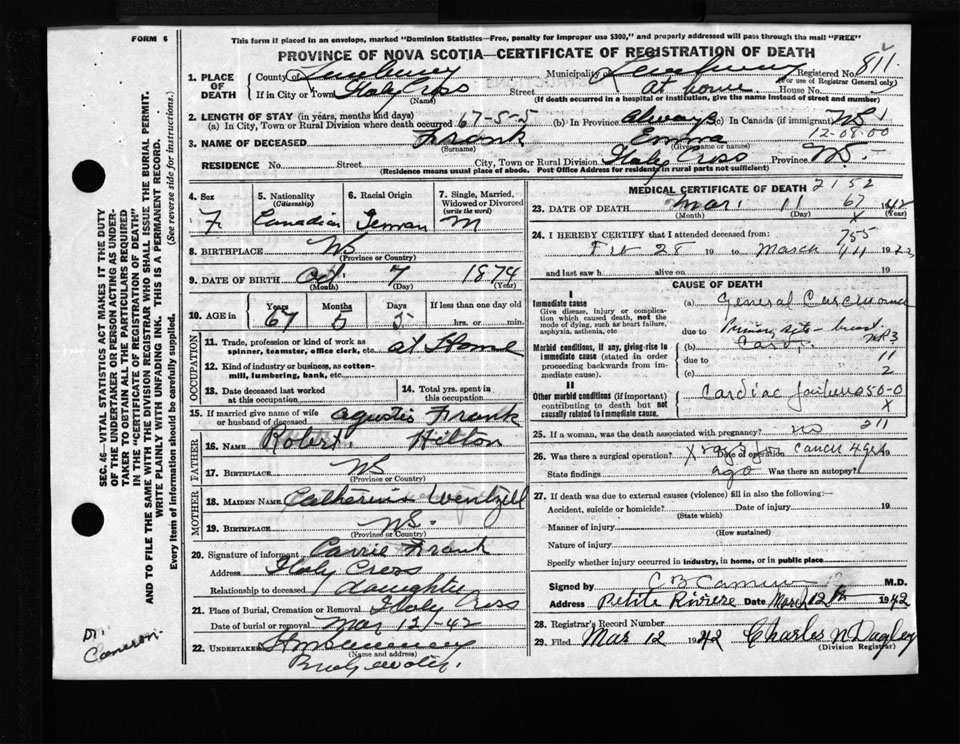 FORM 6
This form if placed in an envelope, marked "Dominion Statistics—Free, penalty for improper use $300," and properly addressed will pass through the mail "FREE"
PROVINCE OF NOVA SCOTIA—CERTIFICATE OF REGISTRATION OF DEATH
1. PLACE OF DEATH
County of Lunenburg Municipality Lunenburg Registered No. 811
(For use of Registrar General only)
If in City or Town Italy Cross Street at home House No.
(Name) (If death occurred in a hospital or institution, give the name instead of street and number)
2. LENGTH OF STAY (in years, months and days)
(a) In City, Town or Rural Division where death occurred 67-5-5 (b) In Province always (c) In Canada (if immigrant) NS
12-08-00
3. NAME OF DECEASED Frank Emma
(Surname) (Given name or names)
RESIDENCE No. Street City, Town or Rural Division Italy Cross Province NS.-
(Residence means usual place of abode. Post Office Address for residents in rural parts not sufficient)
4. Sex F
5. Nationality (Citizenship) Canadian
6. Racial Origin German
7. Single, Married, Widowed or Divorced (write the word) M
8. BIRTHPLACE NS
(Province or Country)
9. DATE OF BIRTH Oct. 7 1874
(Month) (Day) (Year)
10. AGE in Years 67 Months 5 Days 5 If less than one day old hrs. or min.
OCCUPATION
11. Trade, profession or kind of work as spinner, teamster, office clerk, etc. at Home
12. Kind of industry or business, as cotton-mill, lumbering, bank, etc.
13. Date deceased last worked at this occupation
14. Total yrs. spent in this occupation
15. If married give name of wife or husband of deceased Agustis Frank
FATHER
16. Name Robert Hilton
17. BIRTHPLACE NS
(Province or Country)
MOTHER
18. MAIDEN NAME Catherine Wentzell
19. BIRTHPLACE NS.
(Province or Country)
20. Signature of informant Carrie Frank
Address Italy Cross
Relationship to deceased daughter
21. Place of Burial, Cremation or Removal Italy Cross
Date of burial or removal Mar 12/-42
22. UNDERTAKER
(Name and address)
MEDICAL CERTIFICATE OF DEATH 2152
23. DATE OF DEATH Mar. 11 67 42
(Month) (Day) (Year)
X
24. I HEREBY CERTIFY that I attended deceased from: 755
Feb 28 19 to March 11
and last saw h alive on 19
CAUSE OF DEATH
I
Immediate cause
Give disease, injury or complication which caused death, not the mode of dying, such as heart failure, asphyxia, asthenia, etc
(a) General Carcinoma
due to Primary site - breast
Morbid conditions, if any, giving rise to immediate cause (stated in order proceeding backwards from immediate cause).
(b) Card.
due to 11
(c) 2
II
Other morbid conditions (if important) contributing to death but not causally related to immediate cause.
Cardiac failure 50-0
X
25. If a woman, was the death associated with pregnancy? no 211
26. Was there a surgical operation? Date of operation cancer 4 yrs 19
State findings ago Was there an autopsy?
27. If death was due to external causes (violence) fill in also the following:—
Accident, suicide or homicide? Date of injury 19
(State which)
Manner of injury
(How sustained)
Nature of injury
Specify whether injury occurred in industry, in home, or in public place
Signed by C B Cameron M.D.
Address Petite Riviere Date March 12 1942
28. Registrar's Record Number
29. Filed Mar 12 1942 Charles N Dagley
(Division Registrar)
SEC. 46—VITAL STATISTICS ACT MAKES IT THE DUTY OF THE UNDERTAKER OR PERSON ACTING AS UNDERTAKER TO OBTAIN ALL THE PARTICULARS REQUIRED IN THE "CERTIFICATE OF REGISTRATION OF DEATH" AND TO FILE THE SAME WITH THE DIVISION REGISTRAR WHO SHALL ISSUE THE BURIAL PERMIT.
WRITE PLAINLY WITH UNFADING INK. THIS IS A PERMANENT RECORD.
Every item of information should be carefully supplied. (See reverse side for instructions.)
Dr. Cameron.